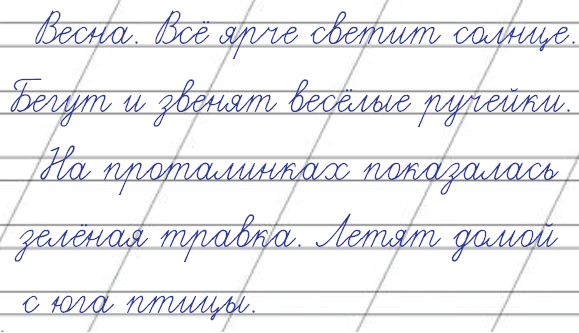 Весна. Всё ярче светит солнце.
Бегут и звенят весёлые ручейки.
На проталинках показалась
зелёная травка. Летят домой
с юга птицы.